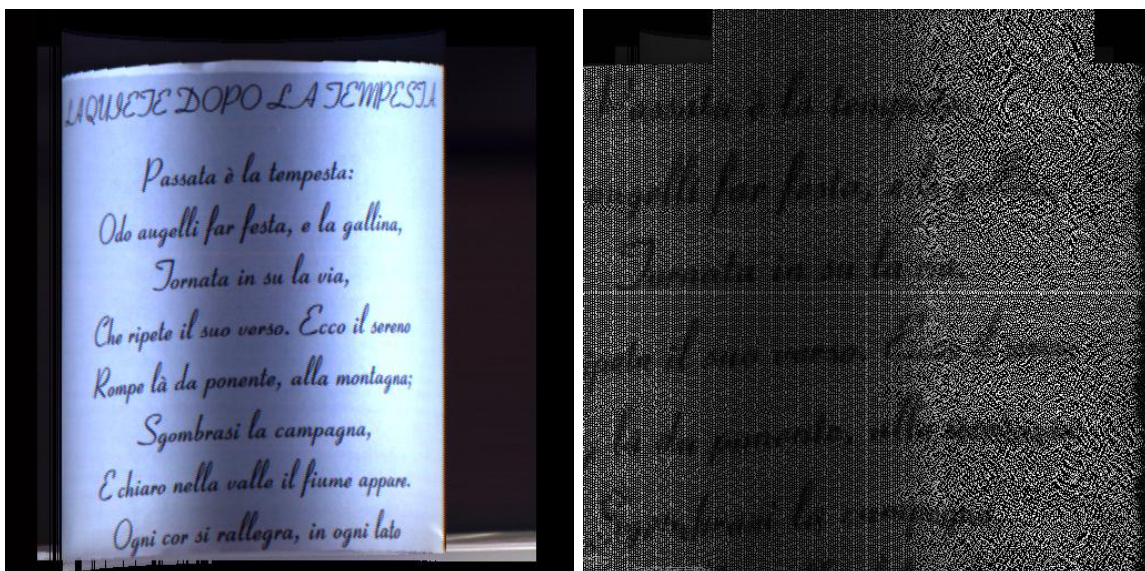 LA QUIETE DOPO LA TEMPESTA
Passata è la tempesta:
Odo augelli far festa, e la gallina,
Tornata in su la via,
Che ripete il suo verso. Ecco il sereno
Rompe là da ponente, alla montagna;
Sgombrasi la campagna,
E chiaro nella valle il fiume appare.
Ogni cor si rallegra, in ogni lato
Passata è la tempesta
augelli far festa, e la
Tornata in su la via
il suo verso. Ecco il
là da ponente, alla montagna
Sgombrasi la campagna